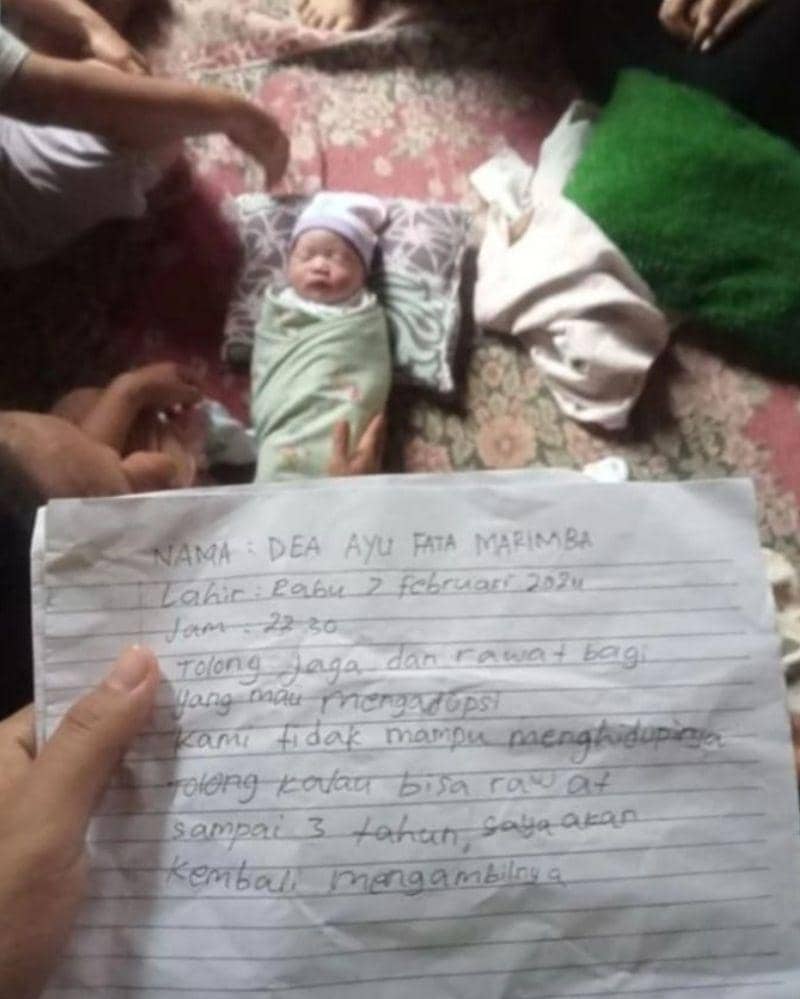 NAMA : DEA AYU FATA MARIMBA
Lahir : Rabu 7 februari 2024
Jam : 22 30
Tolong jaga dan rawat bagi
yang mau mengadopsi
kami tidak mampu menghidupinya
tolong kalau bisa rawat
sampai 3 tahun, saya akan
kembali mengambilnya